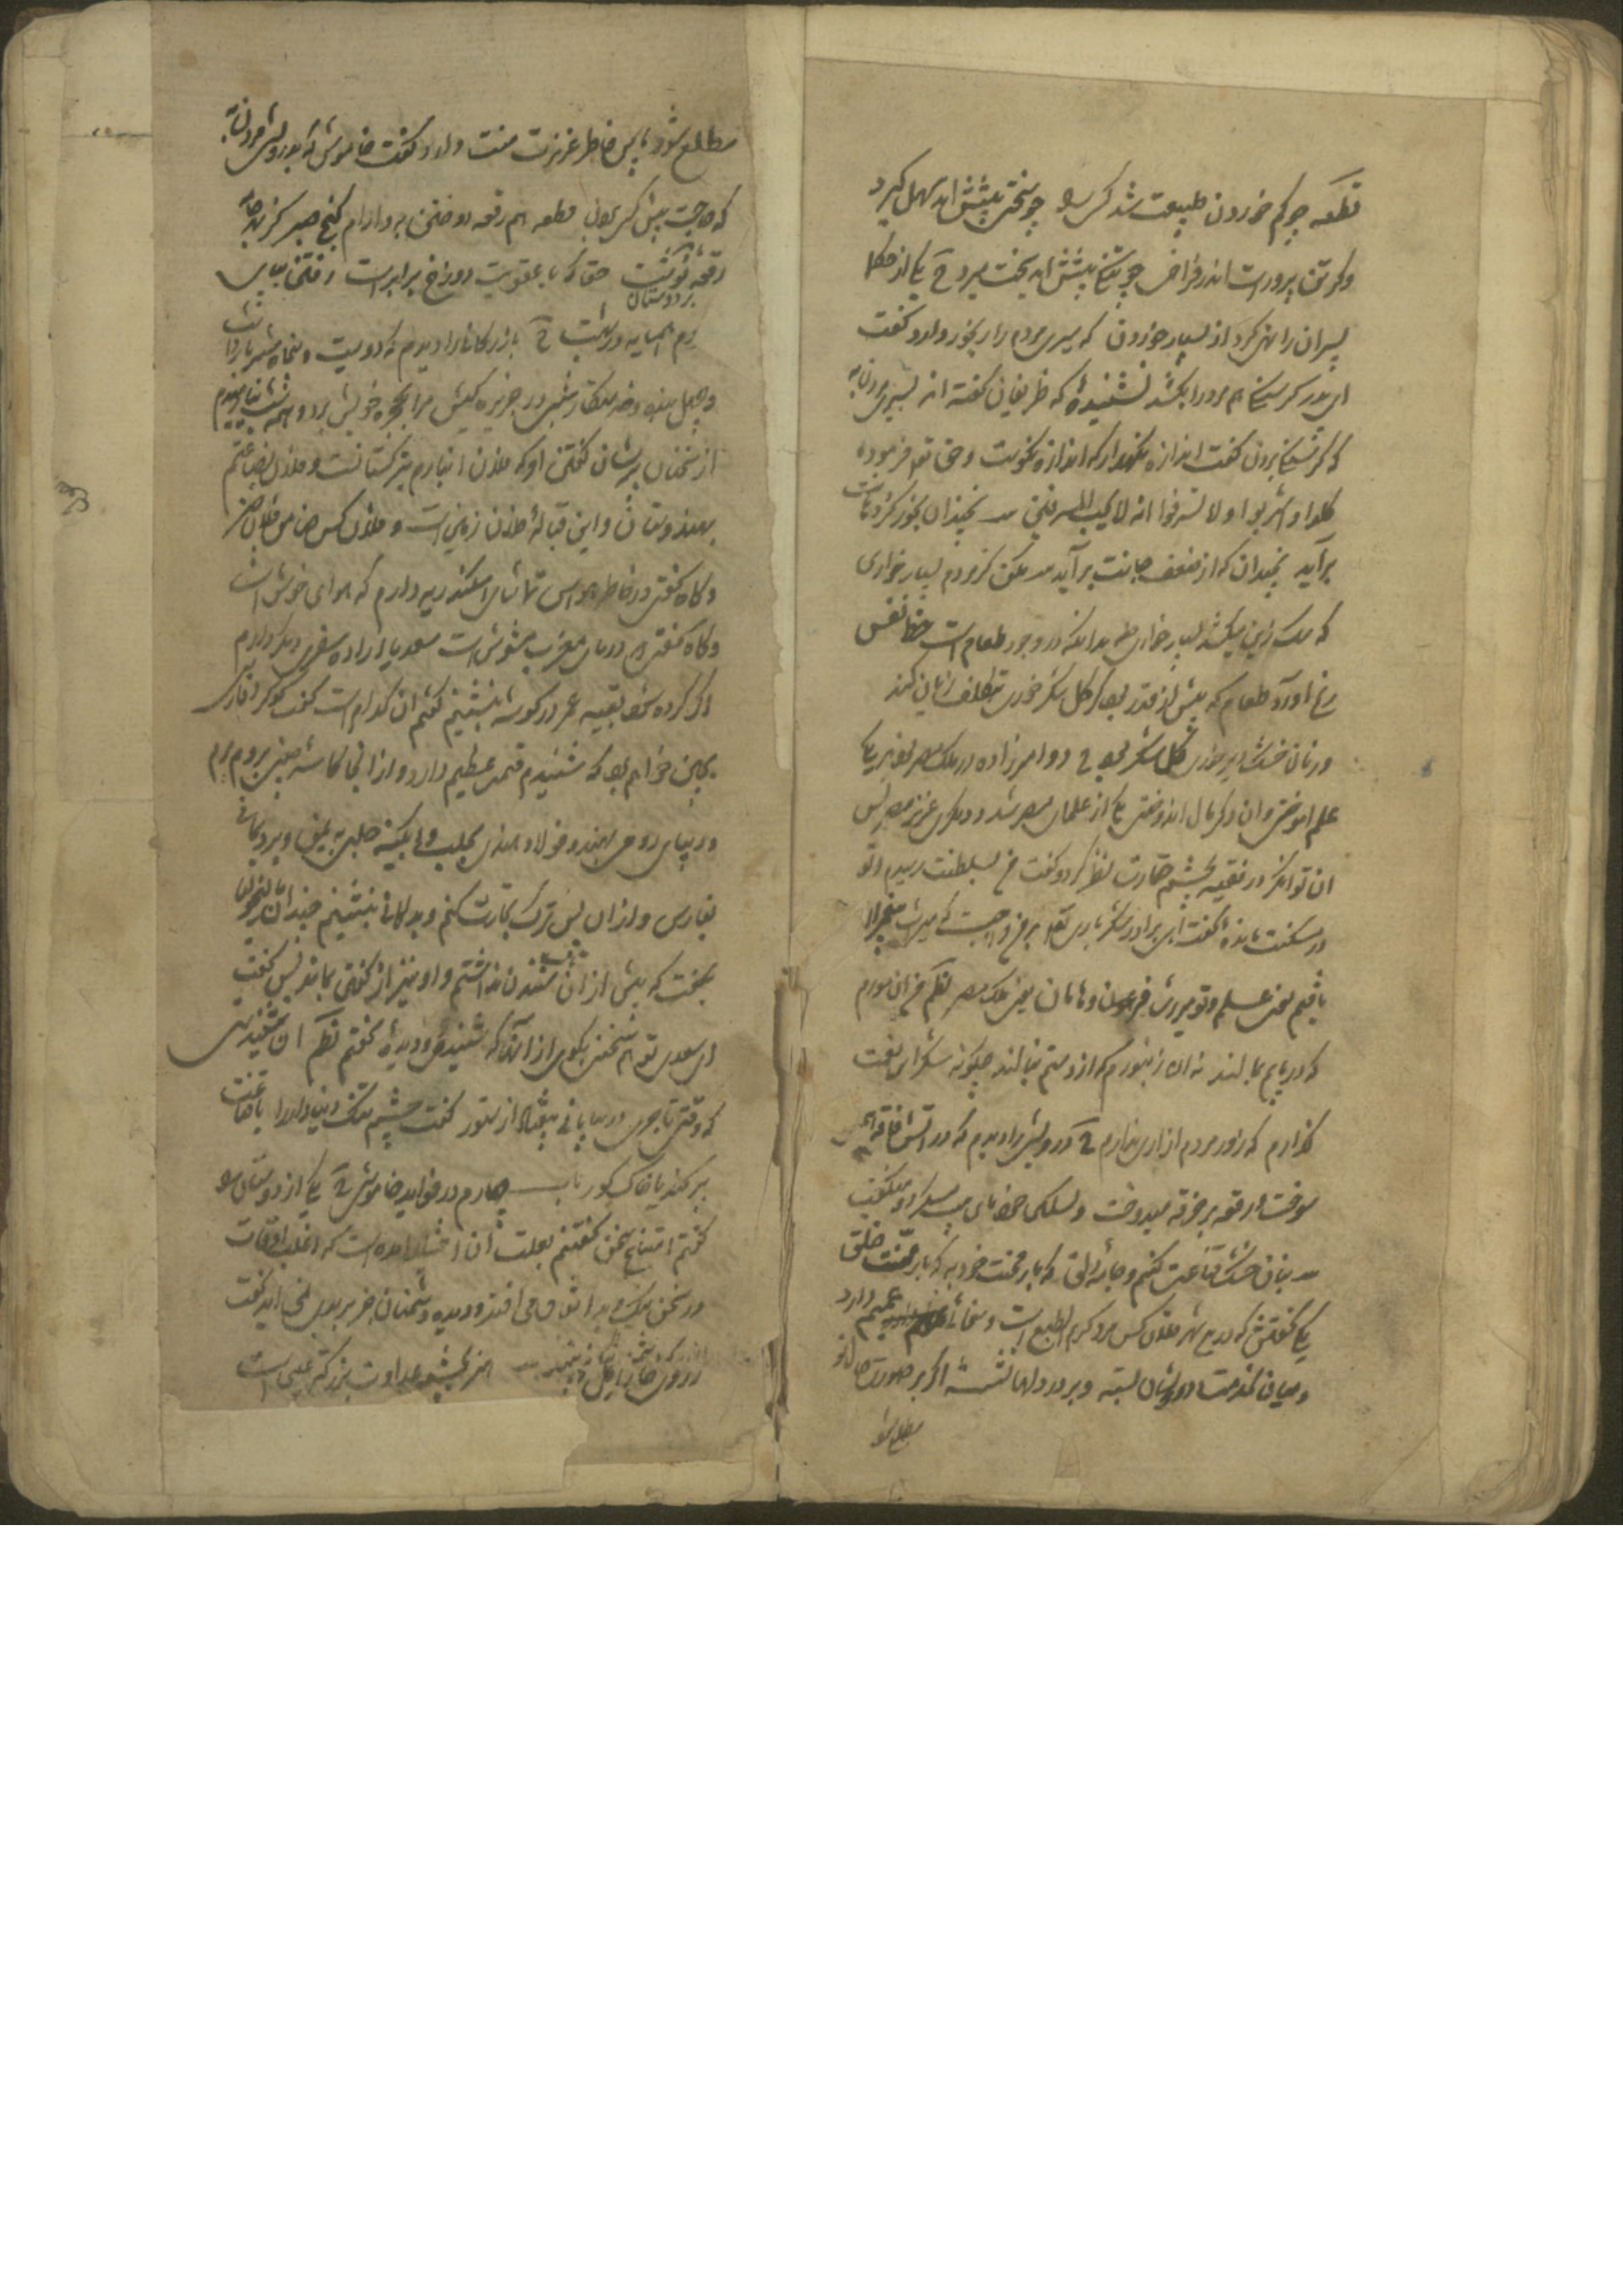 قطعه چو کم خوردن طبیعت شد کسی را چو سختی پیشش آید سهل گیرد
وگر تن پرورست اندر فراخی چو تنگی پیشش آید سخت بمیرد ح یکی از حکما
پسران را نهی کرد از بسیار خوردن که سیری مردم را رنجور دارد گفت
ای پدر گرسنگی هم مرد را بکشد نشنیده که ظریفان گفته اند بسیری مردن به
که گرسنگی بردن گفت اندازه نگهدار که اندازه نکوست و حق تع فرموده
کلوا واشربوا ولا تسرفوا انه لا یحب المسرفین نچندان بخور کز دهانت
برآید نچندان که از ضعف جانت برآید مکن گر مردمی بسیار خواری
که سک زین میکشد بسیار خواری با آنکه در وجود طعامست حظ نفس
رنج آورد طعام که بیش از قدر بود گر گلشکر خوری بتکلف زیان کند
ور نان خشک دیر خوری گلشکر بود ح دو امیرزاده در ملک مصر بودند یکی
علم آموختی و آن دگر مال اندوختی یکی از علمای مصر شد و دیگری عزیز مصر پس
آن توانگر در فقیه بچشم حقارت نظر کرد و گفت من بسلطنت رسیدم و تو
در مسکنت بمانده گفت ای برادر شکر باری تع بر من واجبست که میراث پیغمبران
یافتم یعنی علم و تو میراث فرعون و هامان یعنی ملک مصر نظم من آن مورم
که در پایم بمالند نه آن زنبورم که از دستم بنالند چگونه شکر این نعمت
گذارم که زور مردم آزاری ندارم ح درویشی را دیدم که در آتش فاقه همی
سوخت و رقعه بر خرقه میدوخت و میگفت
بنان خشک قناعت کنم و جامه دلق که بار محنت خود به که بار منت خلق
یکی گفتش که درین شهر فلان کس مرد کریم الطبع است و سخائی عمیم دارد
و میان بخدمت درویشان بسته و بر در دلها نشسته اگر بر صورت حال تو
مطلع شود
مطلع شود پاس خاطر عزیزت منت دارد گفت خاموش که بدرویشی مردن به
که حاجت پیش کسی بردن قطعه هم رقعه دوختن به و الزام کنج صبر کز بهر جامه
رقعه نوشت حقا که با عقوبت دوزخ برابرست رفتن بپای
مردی همسایه در بهشت ح بازرگانی را دیدم که دویست و پنجاه شتر بار داشت
و چهل بنده و خدمتکار شبی در جزیره کیش مرا بحجره خویش برد و همه شب نیارامیدم
از سخنان پریشان گفتن او که فلان انبارم بترکستانست و فلان بضاعتم
بهندوستان و این قباله فلان زمین است و فلان کس ضامن فلان چیز
و گاه گفتی در خاطر هوس تماشای اسکندریه دارم که هوای خوش است
و گاه گفتی دریای مغرب مشوش است سعدیا اراده سفری دیگر دارم
اگر کرده شود بقیه عمر در گوشه بنشینم گفتم آن کدام است گفت گوگرد فارسی
بچین خواهم برد که شنیدم قیمت عظیم دارد و از آنجا کاسه چینی بروم برم
و دیبای رومی بهند و فولاد هندی بحلب و آبگینه حلبی به یمن و برد یمانی
بفارس و از آن پس ترک تجارت کنم و بدکانی بنشینم چندان مالیخولیا
بگفت که بیش از آن تاب شنیدن نداشتم و او نیز از گفتن بماند پس گفت
ای سعدی تو هم سخنی بگوی از آنها که شنیده و دیده گفتم نظم آن شنیدستی
که وقتی تاجری در بیابانی بیفتاد از ستور گفت چشم تنگ دنیا دار را یا قناعت
پر کند یا خاک گور باب چهارم در فواید خاموشی ح یکی از دوستان را
گفتم امتناع سخن گفتنم بعلت آن اختیار آمده است که اغلب اوقات
در سخن نیک و بد اتفاق می افتد و دیده دشمنان جز بر بدی نمی آید گفت
هنر بچشم عداوت بزرگتر عیبی است